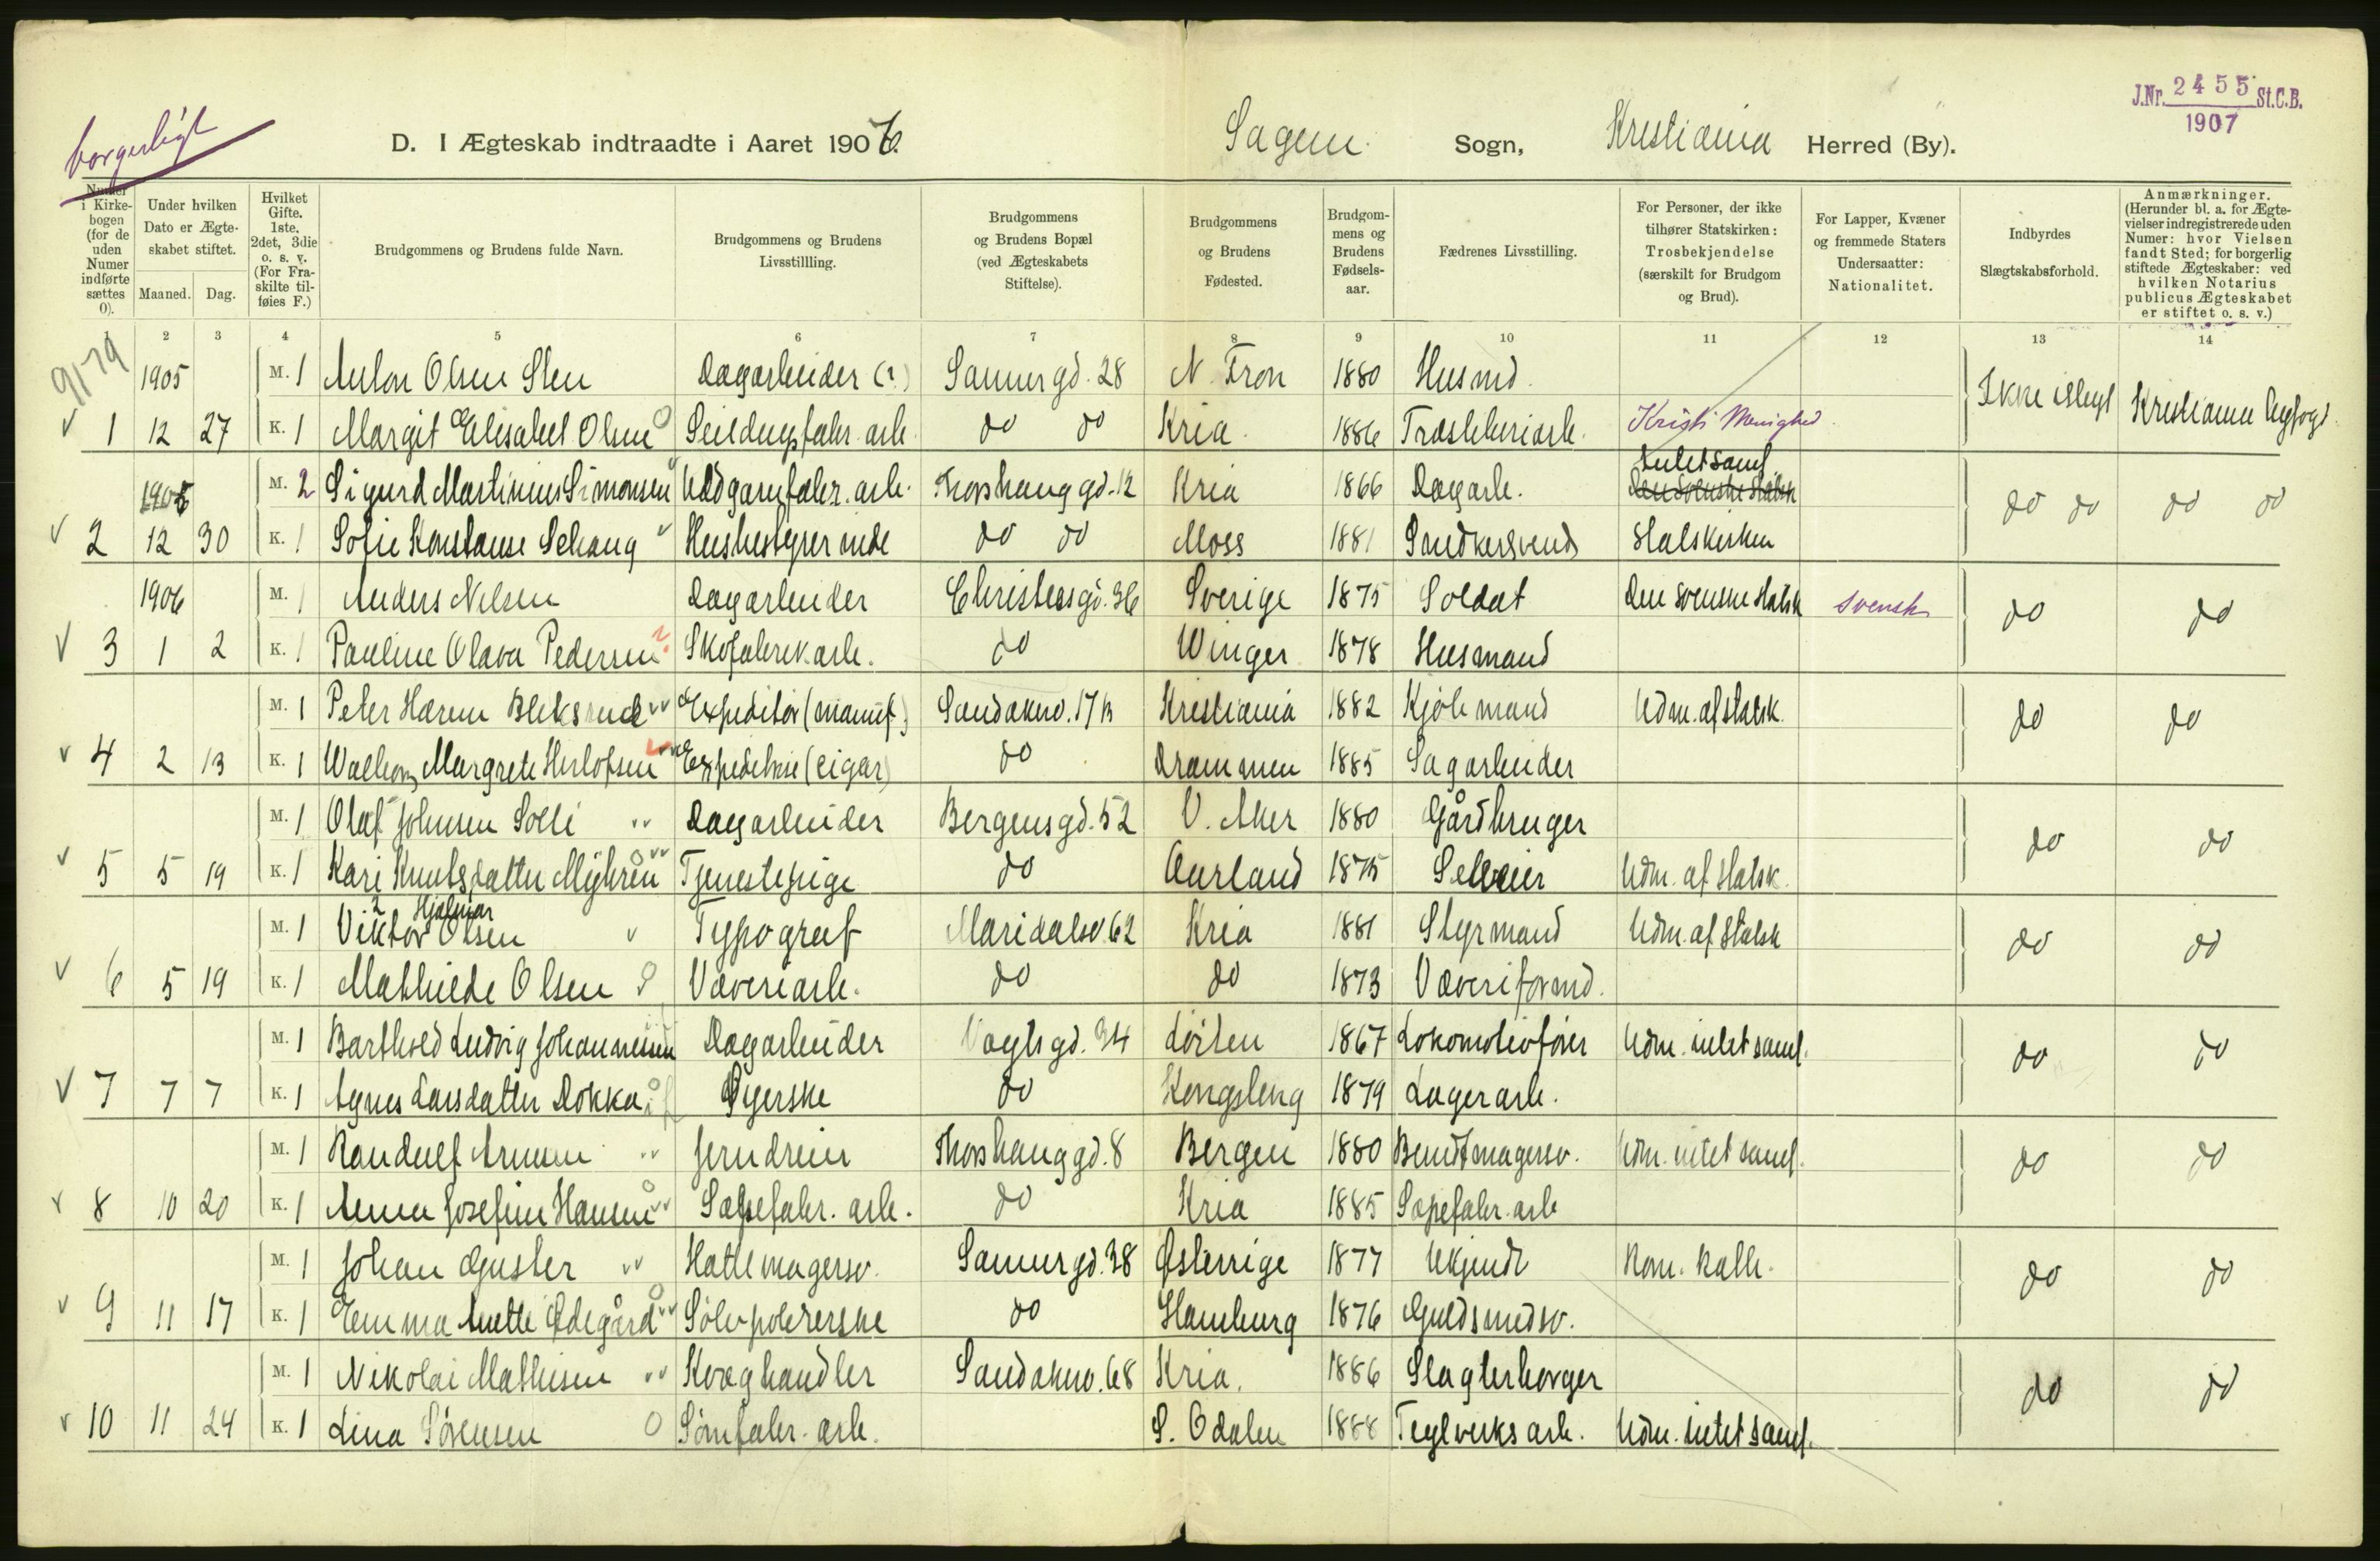 borgerligt
D. I Ægteskab indtraadte i Aaret 1906.
Sagene Sogn, Kristiania Herred (By).
J.Nr. 2455 St.C.B.
1907
Numer i Kirke-bogen (for de uden Numer indførte sættes 0).
Under hvilken Dato er Ægte-skabet stiftet.
Maaned. Dag.
Hvilket Gifte. 1ste. 2det, 3die o. s. v. (For Fra-skilte til-føies F.)
Brudgommens og Brudens fulde Navn.
Brudgommens og Brudens Livsstillling.
Brudgommens og Brudens Bopæl (ved Ægteskabets Stiftelse).
Brudgommens og Brudens Fødested.
Brudgom-mens og Brudens Fødsels-aar.
Fædrenes Livsstilling.
For Personer, der ikke tilhører Statskirken: Trosbekjendelse (særskilt for Brudgom og Brud).
For Lapper, Kvæner og fremmede Staters Undersaatter: Nationalitet.
Indbyrdes Slægtskabsforhold.
Anmærkninger. (Herunder bl. a. for Ægte-vielser indregistrerede uden Numer: hvor Vielsen fandt Sted; for borgerlig stiftede Ægteskaber: ved hvilken Notarius publicus Ægteskabet er stiftet o. s. v.)
1 2 3 4 5 6 7 8 9 10 11 12 13 14
9179
1905 M. 1 Anton Olsen Sten Dagarbeider (?) Sannergd. 28 N. Fron 1880 Husmd. Ikke islegt Kristiania byfogd
1 12 27 K. 1 Margit Elisabet Olsen Seildugsfabr. arb. do do Kria. 1886 Træsliberiarb. Kristi Menighed
1905 M. 2 Sigurd Martinius Simonsen Uldgarnfabr. arb. Thorshauggd. 12 Kria 1866 Dagarb. Intet samf. Den svenske statsk do do do do
2 12 30 K. 1 Sofie Konstanse Schaug Husbestyrerinde do do Moss 1881 Snedkersvend Statskirken
1906 M. 1 Anders Nilsen Dagarbeider Christiesgd. 36 Sverige 1875 Soldat Den svenske statsk svensk do do
3 1 2 K. 1 Pauline Olava Pedersen Skofabrik.arb. do Winger 1878 Husmand
M. 1 Peter Harem Bleksrud Expeditør (manuf.) Sandakerv. 17B Kristiania 1882 Kjøbmand Udm. af statsk. do do
4 2 13 K. 1 Margrete Herlofsen Expeditrise (cigar) do Drammen 1885 Sagarbeider
M. 1 Olaf Johnsen Solli Dagarbeider Bergensgd. 52 V. Aker 1880 Gårdbruger do do
5 5 19 K. 1 Kari Knutsdatter Myhren Tjenestepige do Aurland 1875 Seleier Udm. af statsk.
M. 1 Viktor Hjalmar Olsen Typograf Maridalsv. 62 Kria 1881 Styrmand Udm. af statsk do do
6 5 19 K. 1 Mathilde Olsen Væveriarb. do do 1873 Væveriformd.
M. 1 Barthold Ludvig Johannessen Dagarbeider Vogtsgd. 34 Løiten 1867 Lokomotivfører Udm. intet samf. do do
7 7 7 K. 1 Agnes Larsdatter Dokka Syerske do Kongsberg 1879 Lagerarb.
M. 1 Randulf Jerndreier Thorshauggd. 8 Bergen 1880 Bundtmagersv. Udm. intet samf. do do
8 10 20 K. 1 Anna Josefine Hansen Sæpefabr. arb. do Kria 1885 Sæpefabr. arb
M. 1 Johan Guster Hattemagersv. Sannergd. 38 Østerrige 1877 Ukjendt Rom. Kath. do do
9 11 17 K. 1 Emma Anette Ødegård Sølvpolererske do Hamburg 1876 Guldsmedsv.
M. 1 Nikolai Mathisen Kvæghandler Sandakerv. 68 Kria. 1886 Slagterborger do do
10 11 24 K. 1 Lina Sørensen Sømfabr. arb. S. Odalen 1888 Teglverksarb. Udm. intet samf.